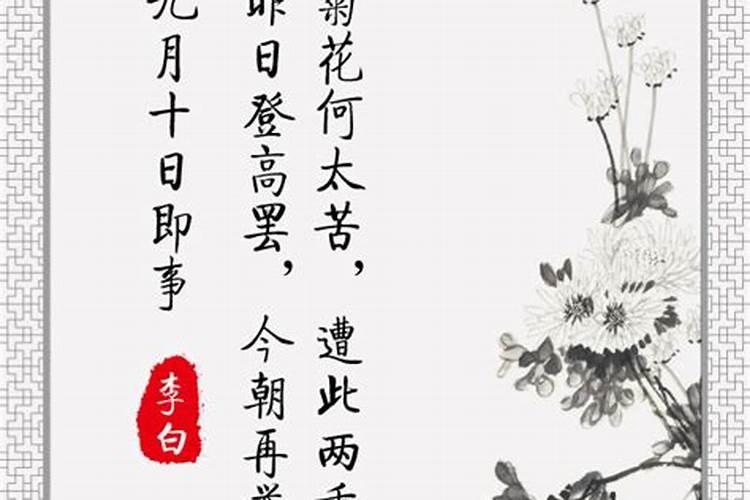 菊花何太苦，遭此两
昨日登高罢，今朝再
九月十日即事
李白